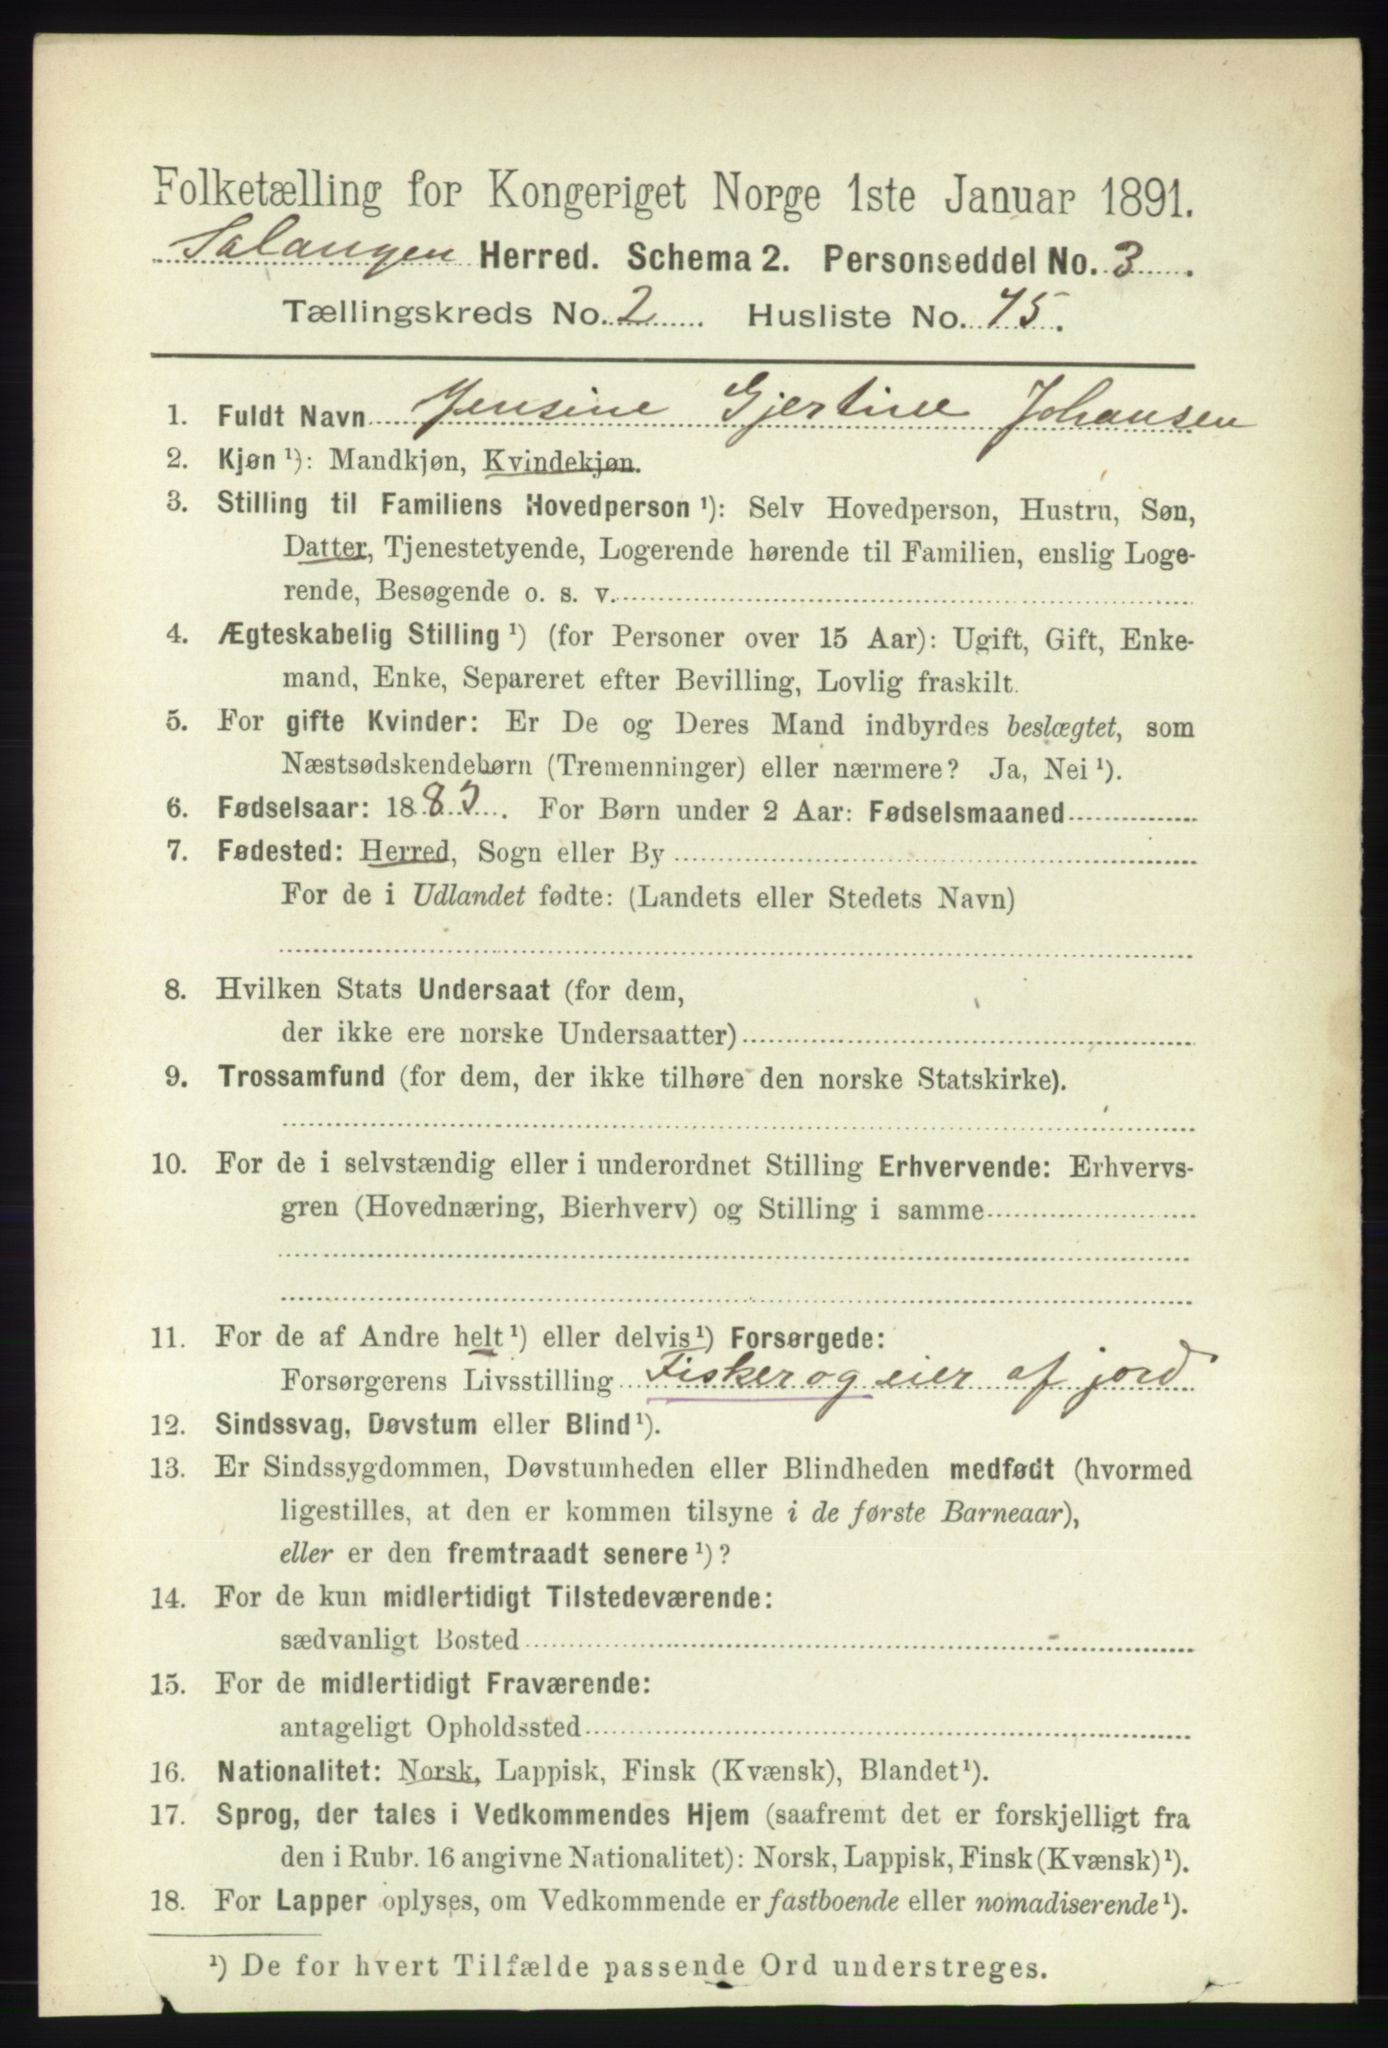 Folketælling for Kongeriget Norge 1ste Januar 1891.
Salangen Herred. Schema 2. Personseddel No. 3.
Tællingskreds No. 2 Husliste No. 75.
1. Fuldt Navn Jensine Gjertine Johansen
2. Kjøn ¹): Mandkjøn, Kvindekjøn.
3. Stilling til Familiens Hovedperson ¹): Selv Hovedperson, Hustru, Søn,
Datter, Tjenestetyende, Logerende hørende til Familien, enslig Loge-
rende, Besøgende o. s. v.
4. Ægteskabelig Stilling ¹) (for Personer over 15 Aar): Ugift, Gift, Enke-
mand, Enke, Separeret efter Bevilling, Lovlig fraskilt.
5. For gifte Kvinder: Er De og Deres Mand indbyrdes beslægtet, som
Næstsødskendebørn (Tremenninger) eller nærmere? Ja, Nei ¹).
6. Fødselsaar: 1883. For Børn under 2 Aar: Fødselsmaaned
7. Fødested: Herred, Sogn eller By
For de i Udlandet fødte: (Landets eller Stedets Navn)
8. Hvilken Stats Undersaat (for dem,
der ikke ere norske Undersaatter)
9. Trossamfund (for dem, der ikke tilhøre den norske Statskirke).
10. For de i selvstændig eller i underordnet Stilling Erhvervende: Erhvervs-
gren (Hovednæring, Bierhverv) og Stilling i samme
11. For de af Andre helt ¹) eller delvis ¹) Forsørgede:
Forsørgerens Livsstilling Fisker og eier af jord
12. Sindssvag, Døvstum eller Blind ¹).
13. Er Sindssygdommen, Døvstumheden eller Blindheden medfødt (hvormed
ligestilles, at den er kommen tilsyne i de første Barneaar),
eller er den fremtraadt senere ¹)?
14. For de kun midlertidigt Tilstedeværende:
sædvanligt Bosted
15. For de midlertidigt Fraværende:
antageligt Opholdssted
16. Nationalitet: Norsk, Lappisk, Finsk (Kvænsk), Blandet ¹).
17. Sprog, der tales i Vedkommendes Hjem (saafremt det er forskjelligt fra
den i Rubr. 16 angivne Nationalitet): Norsk, Lappisk, Finsk (Kvænsk) ¹).
18. For Lapper oplyses, om Vedkommende er fastboende eller nomadiserende ¹).
¹) De for hvert Tilfælde passende Ord understreges.